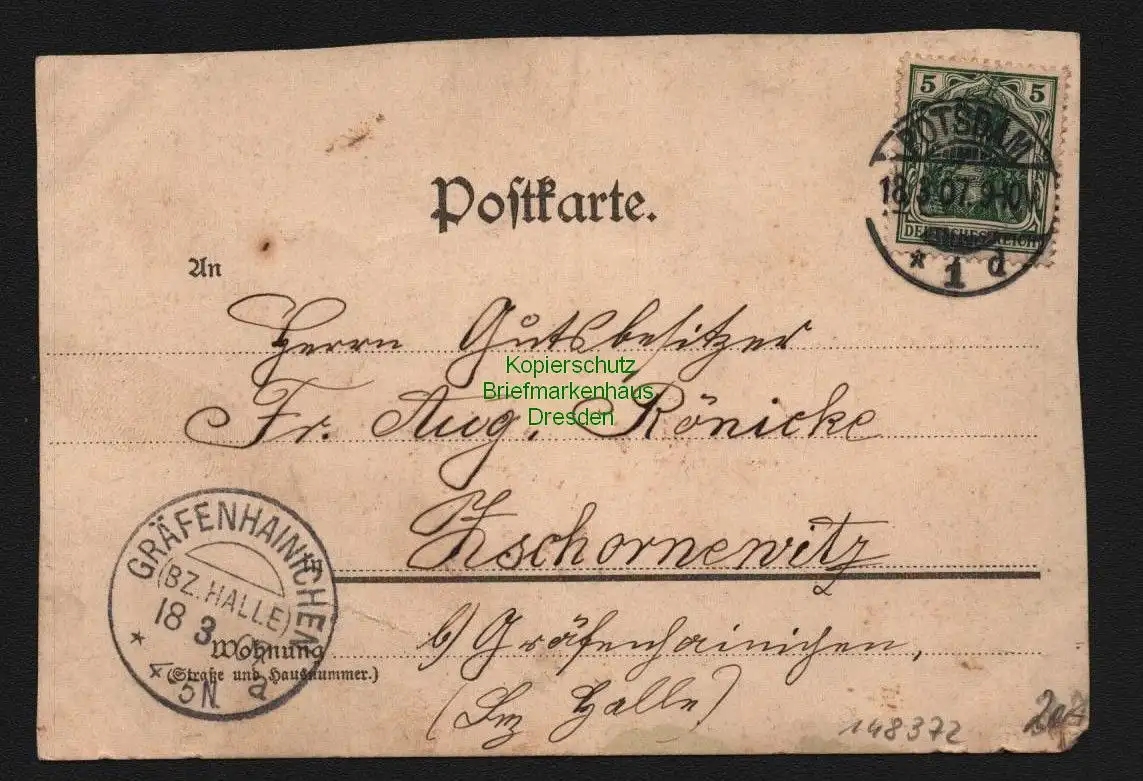 5 5
DEUTSCHES REICH
POTSDAM
18.3.07. 9-10V
* 1 d
Postkarte.
An
Herrn Gutsbesitzer
Kopierschutz
Briefmarkenhaus
Dresden
Fr. Aug. Rönicke
Zschornewitz
b/ Gräfenhainichen,
(Bz Halle)
GRÄFENHAINICHEN
(BZ. HALLE)
18 3
* 4-5N a
Wohnung
(Straße und Hausnummer.)
148372